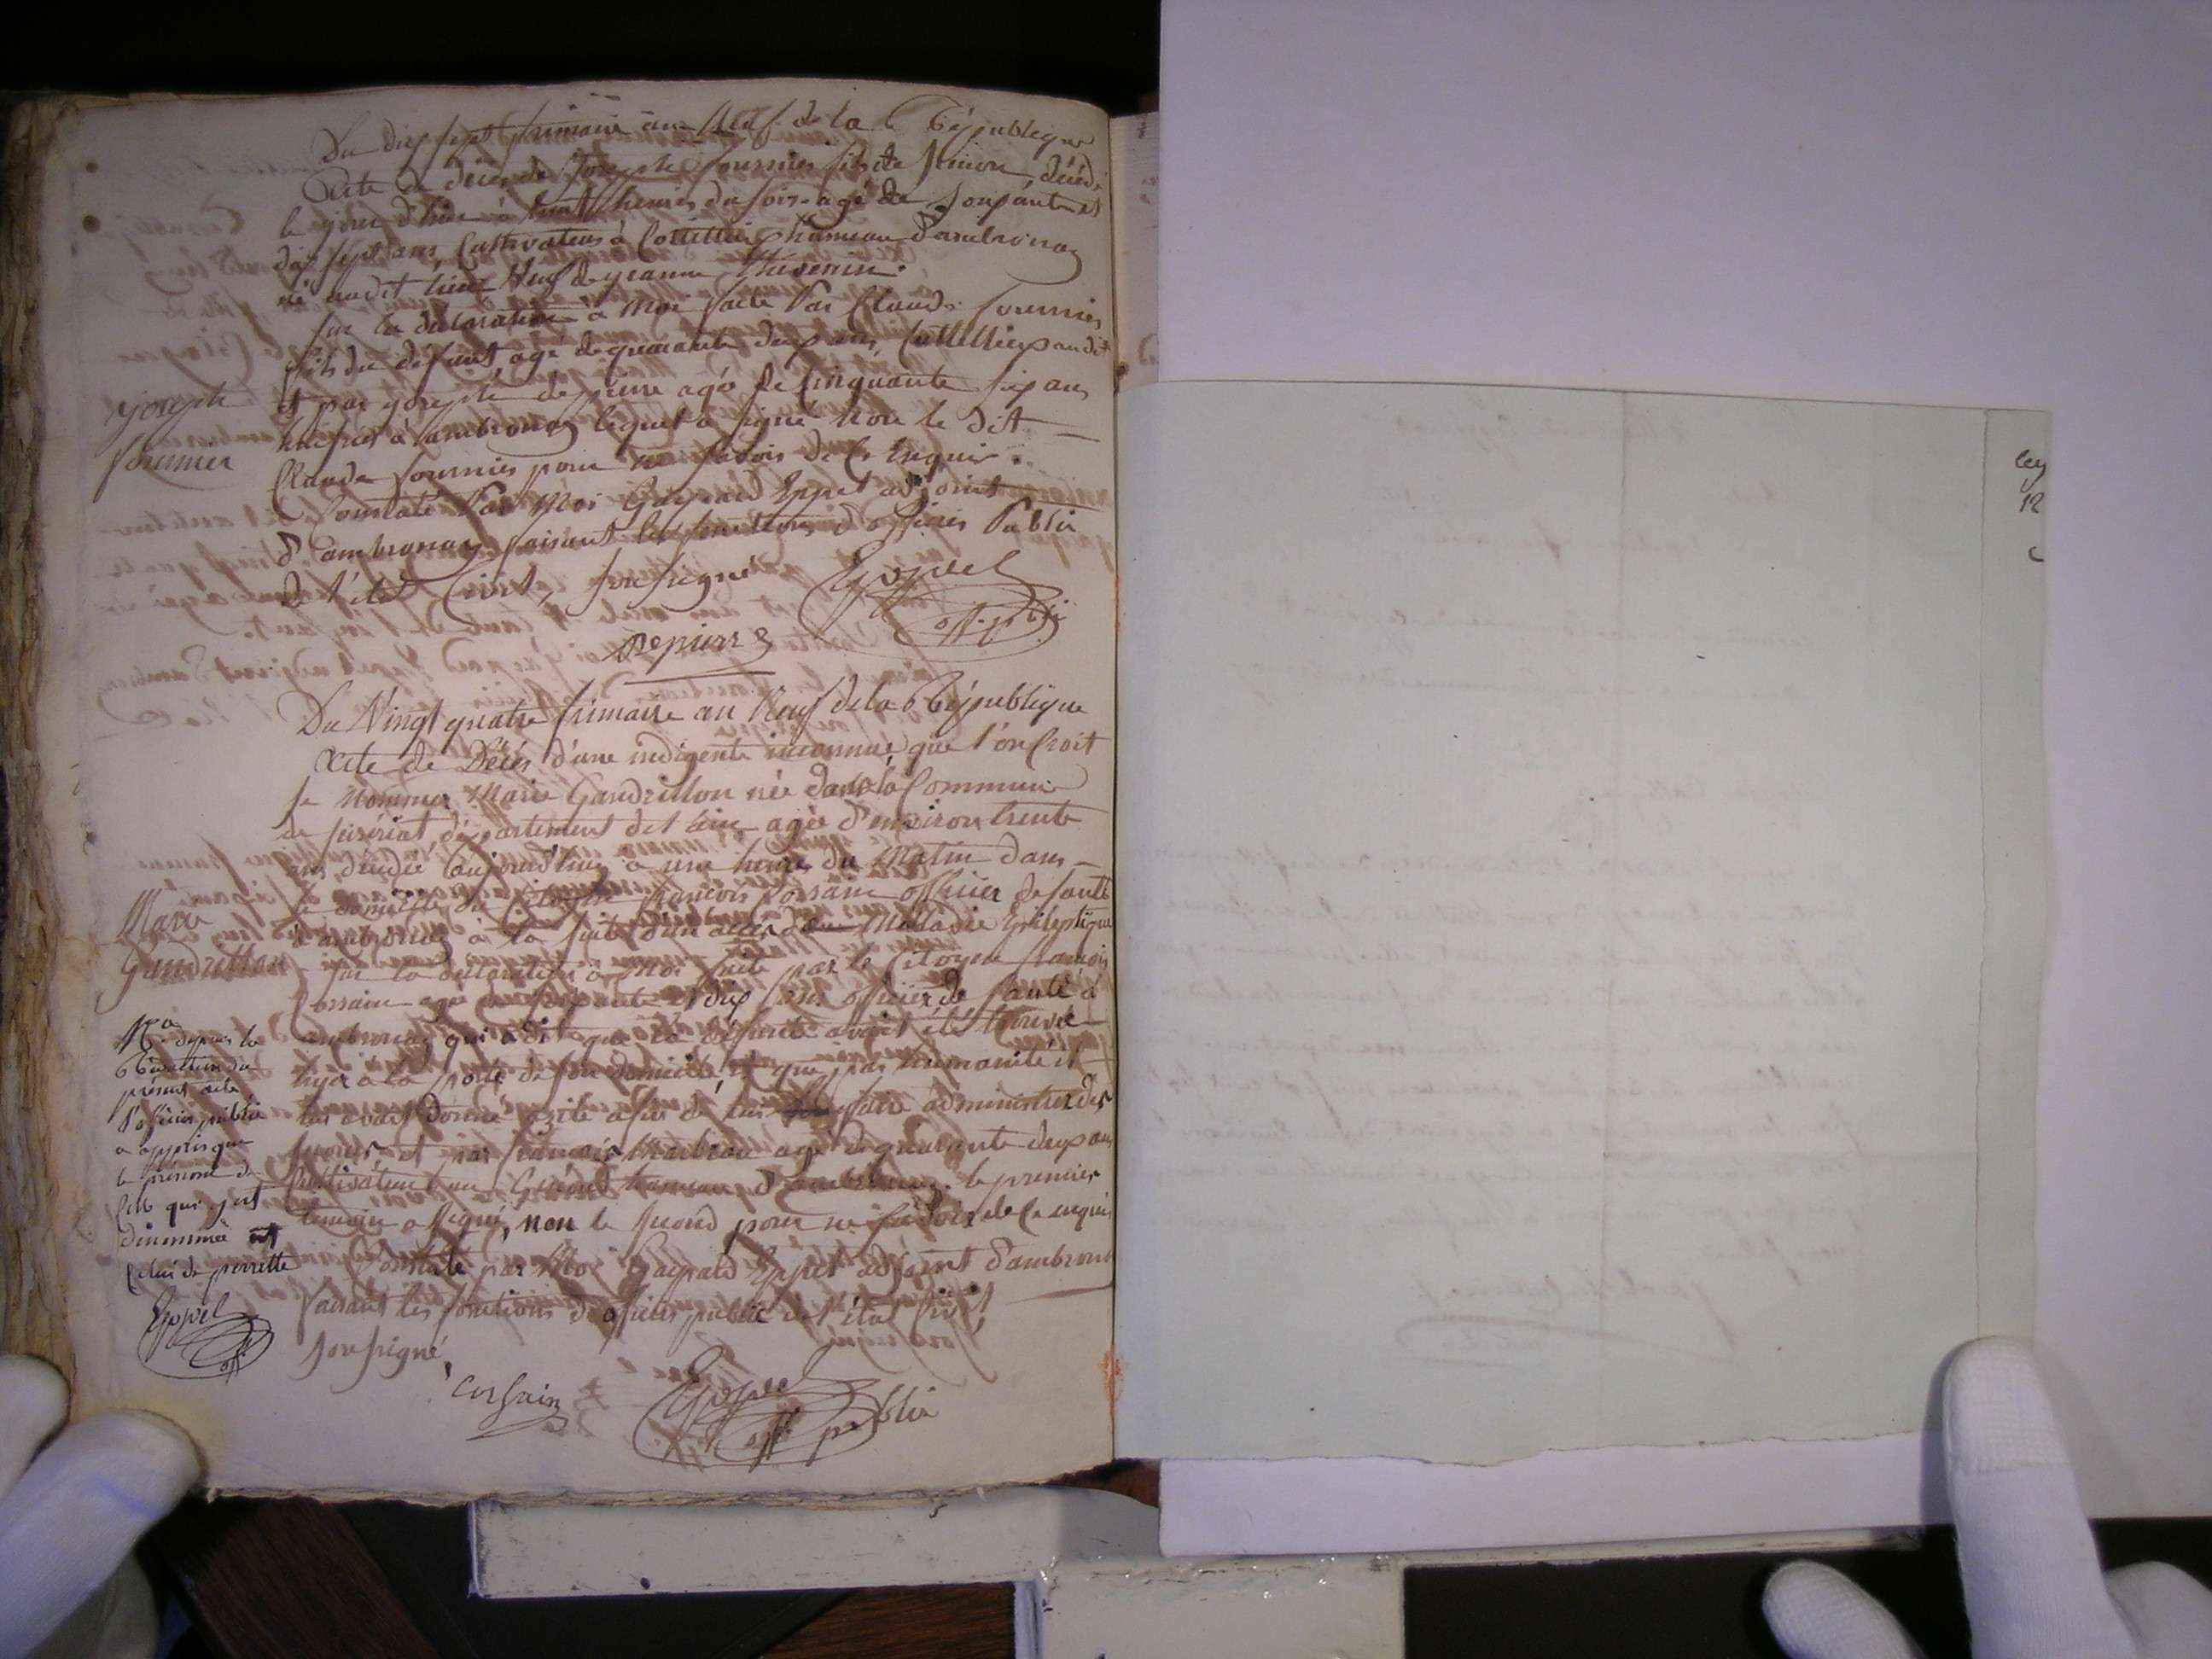 Du dix sept frimaire an Neuf de la République
Acte de décès de Joseph fournier fils de Simon, décédé
le jour d'hier à huit heures du soir agé de soixante et
dix sept ans, Cultivateur à hameau d'ambronay
né audit lieu Veuf de jeanne thévenin.
sur la déclaration à Moi faite Par Claude fournier
fils du défunt, agé de quarante deux ans, audit
et par joseph depierre agé de Cinquante six ans
huissier à ambronay lequel a signé Non le dit
Claude fournier pour ne savoir de Ce Enquis.
Constaté Par Moi Gaspard Eppel adjoint
d'ambronay faisant les fonctions d'officier Public
de l'état Civil, soussigné
Joseph
fournier
Eppel
off. public
Depierre
Du Vingt quatre frimaire an Neuf de la République
Acte de Décès d'une indigente inconnue que l'on Croit
se nommer Marie Gandrillon née dans la Commune
de département de l'ain agée d'environ trente
ans, décédée aujourd'hui à une heure du Matin dans
le domicile du Citoyen françois Corsain officier de santé
à ambronay à la suite d'un accès de Maladie Epileptique
sur la déclaration à Moi faite par le Citoyen françois
Corsain agé de soixante et dix ans officier de santé à
ambronay qui a dit que la défunte avoit été trouvée
hyer à la porte de son domicile et que par humanité il
lui avoit donné azile afin de lui faire administrer des
secours et par françois agé de quarante deux ans
Cultivateur au hameau d'ambronay. le premier
témoin a signé, non le second pour ne savoir de Ce enquis
Constaté par Moi Gaspard Eppel adjoint d'ambronay
faisant les fonctions d'officier public de l'état Civil
soussigné
Marie
Gandrillon
Na depuis la
Rédaction du
présent acte
l'officier public
a appris que
le prénom de
Celle qui y est
dénommée est
Celui de perrette
Eppel
off.
Corsain
Eppel
off. public
12